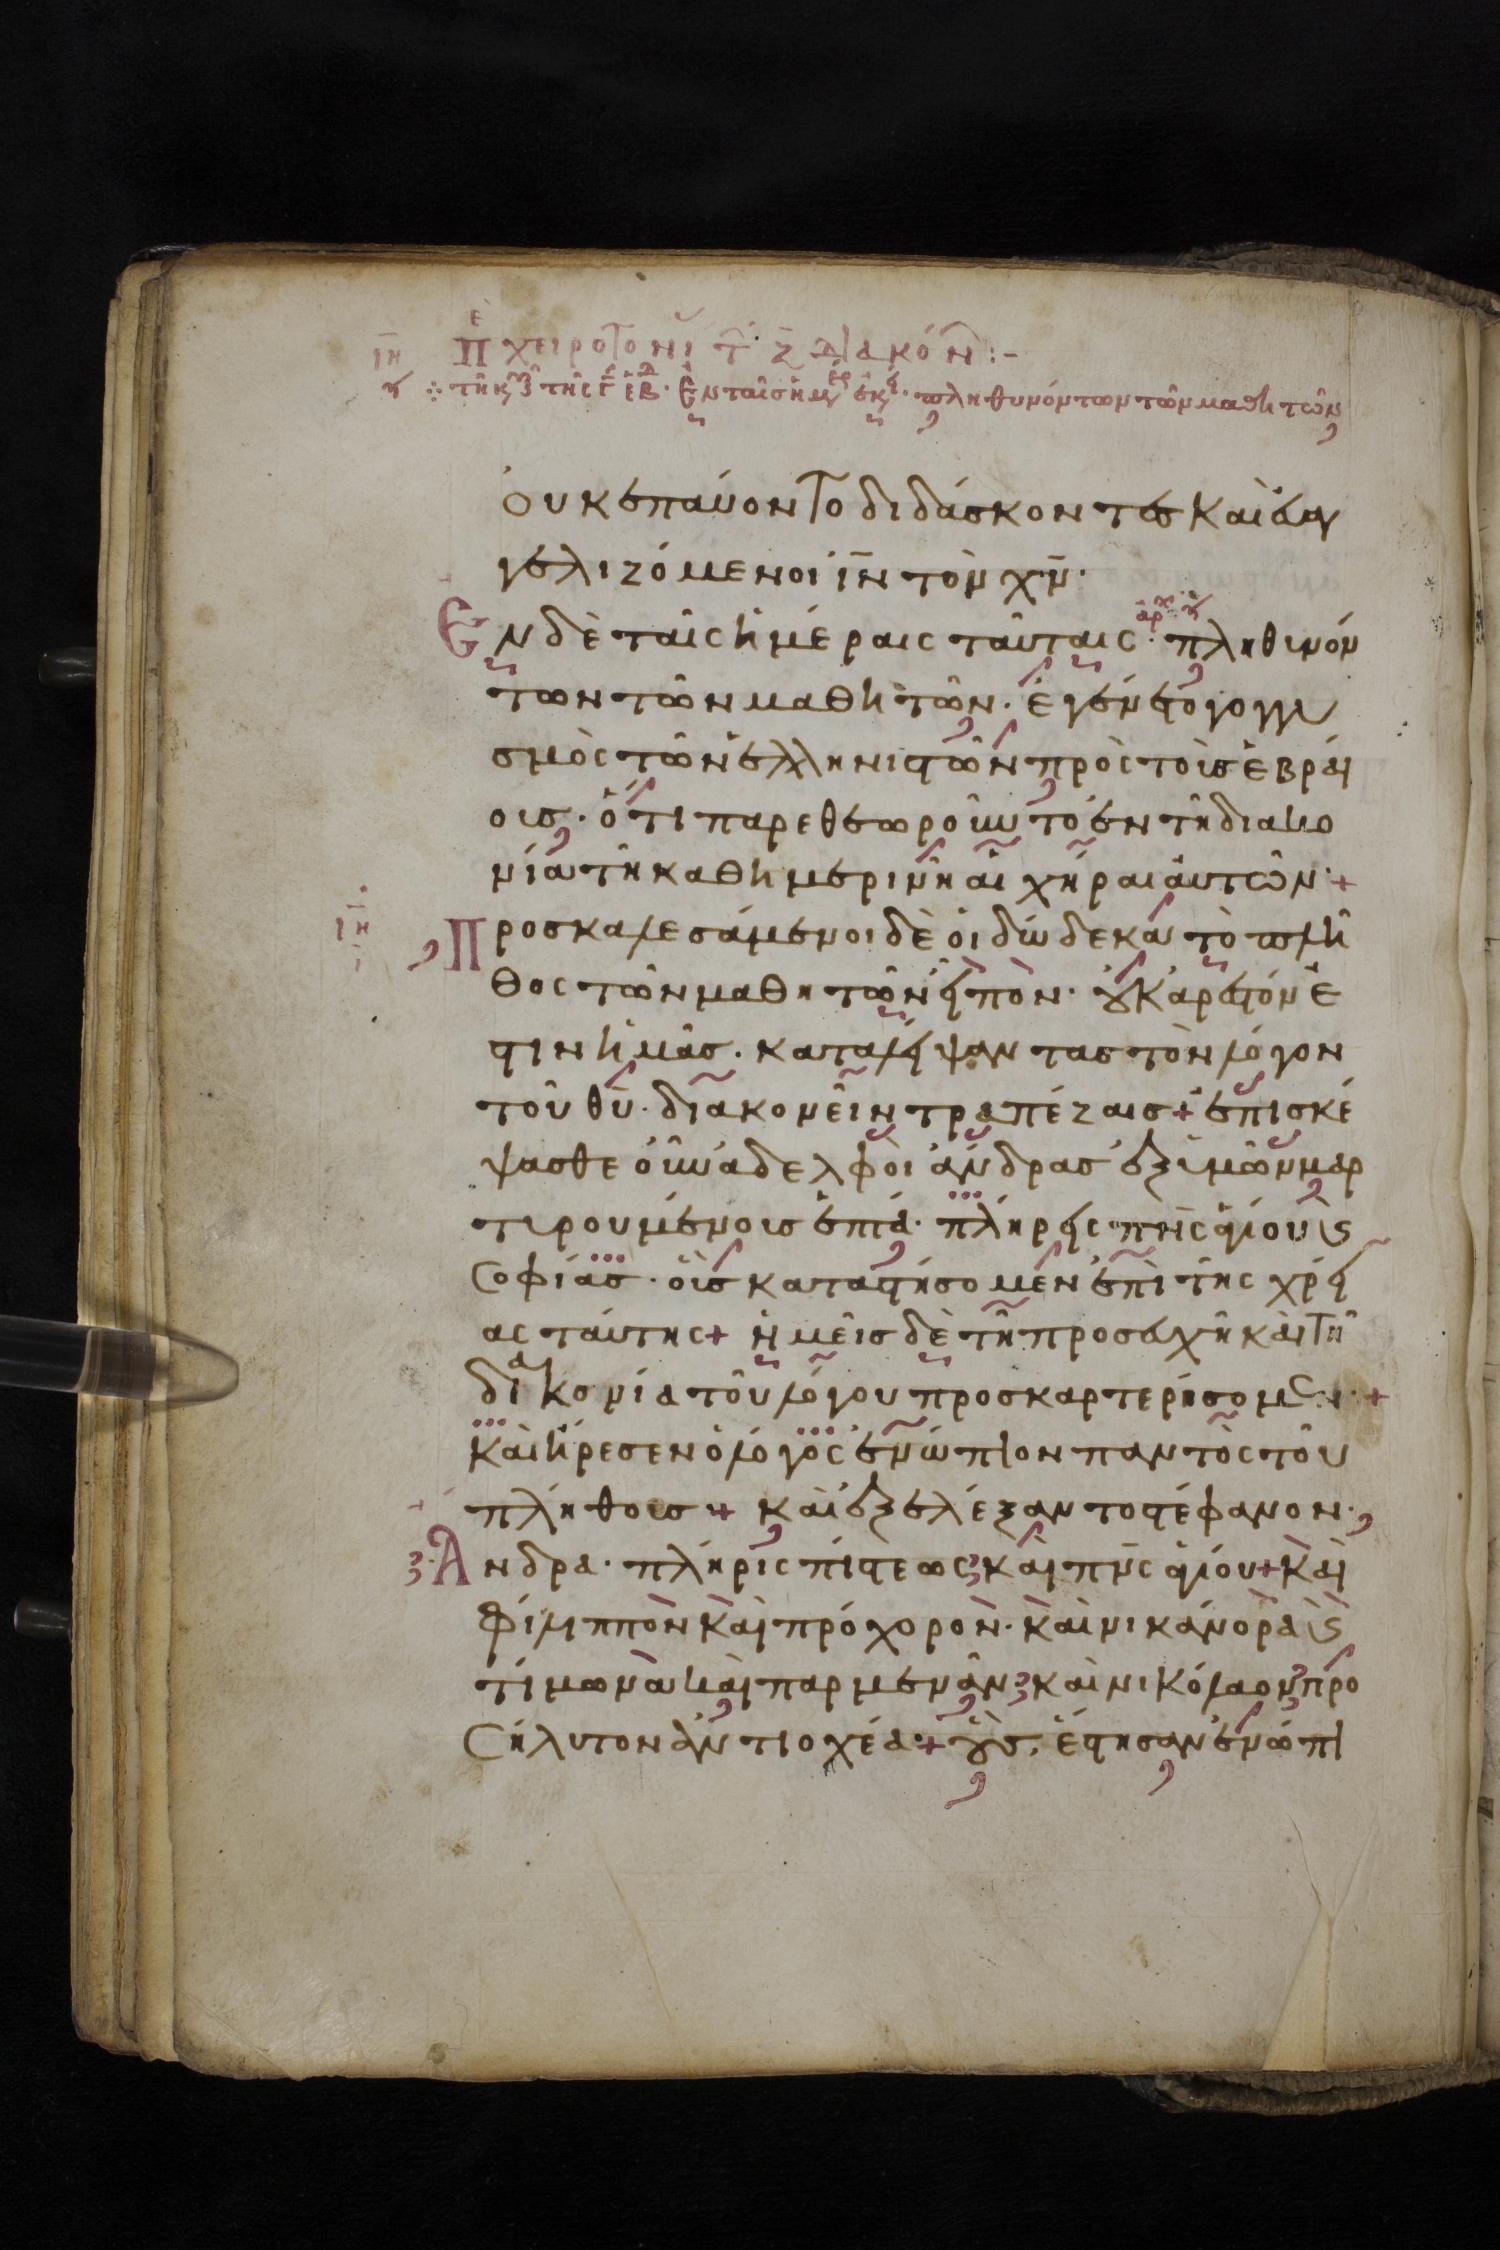 ιη Πε χειροτονι τ ζ διακόν :-
τῆ κυ ζ τῆς ἑβ. Ἐν ταῖς ἡμ ἐκ. πληθυνόντων τῶν μαθητῶν
Οὐκ ἐπαύοντο διδάσκοντες καὶ εὐαγ
γελιζόμενοι ἰν τὸν χν.
Ἐν δὲ ταῖς ἡμέραις ταύταις. ἀρχ πληθυνόν
των τῶν μαθητῶν. ἐγένετο γογγυ
σμὸς τῶν ἑλληνιστῶν πρὸς τοὺς ἑβραί
ους. ὅτι παρεθεωροῦντο ἐν τῆ διακο
νία τῆ καθημερινῆ αἱ χῆραι αὐτῶν. +
ιη Προσκαλεσάμενοι δὲ οἱ δώδεκα τὸ πλῆ
θος τῶν μαθητῶν εἶπον. οὐκ ἀρεστόν ἐ
στιν ἡμᾶς. καταλείψαντας τὸν λόγον
τοῦ θυ. διακονεῖν τραπέζαις + ἐπισκέ
ψασθε οὖν ἀδελφοὶ ἄνδρας ἐξ ὑμῶν μαρ
τυρουμένους ἑπτά. πλήρεις πνς ἁγίου κς
σοφίας. οὓς καταστήσομεν ἐπὶ τῆς χρεί
ας ταύτης + ἡμεῖς δὲ τῆ προσευχῆ καὶ τῆ
διακονία τοῦ λόγου προσκαρτερήσομεν. +
καὶ ἤρεσεν ὁ λόγος ἐνώπιον παντὸς τοῦ
πλήθους + καὶ ἐξελέξαντο στέφανον.
Ἄνδρα. πλήρις πίστεως καὶ πνς ἁγίου + καὶ
φίλιππον καὶ πρόχορον. καὶ νικάνορα κς
τίμωνα καὶ παρμενᾶν καὶ νικόλαον προ
σήλυτον ἀντιοχέα. + οὓς ἔστησαν ἐνώπι